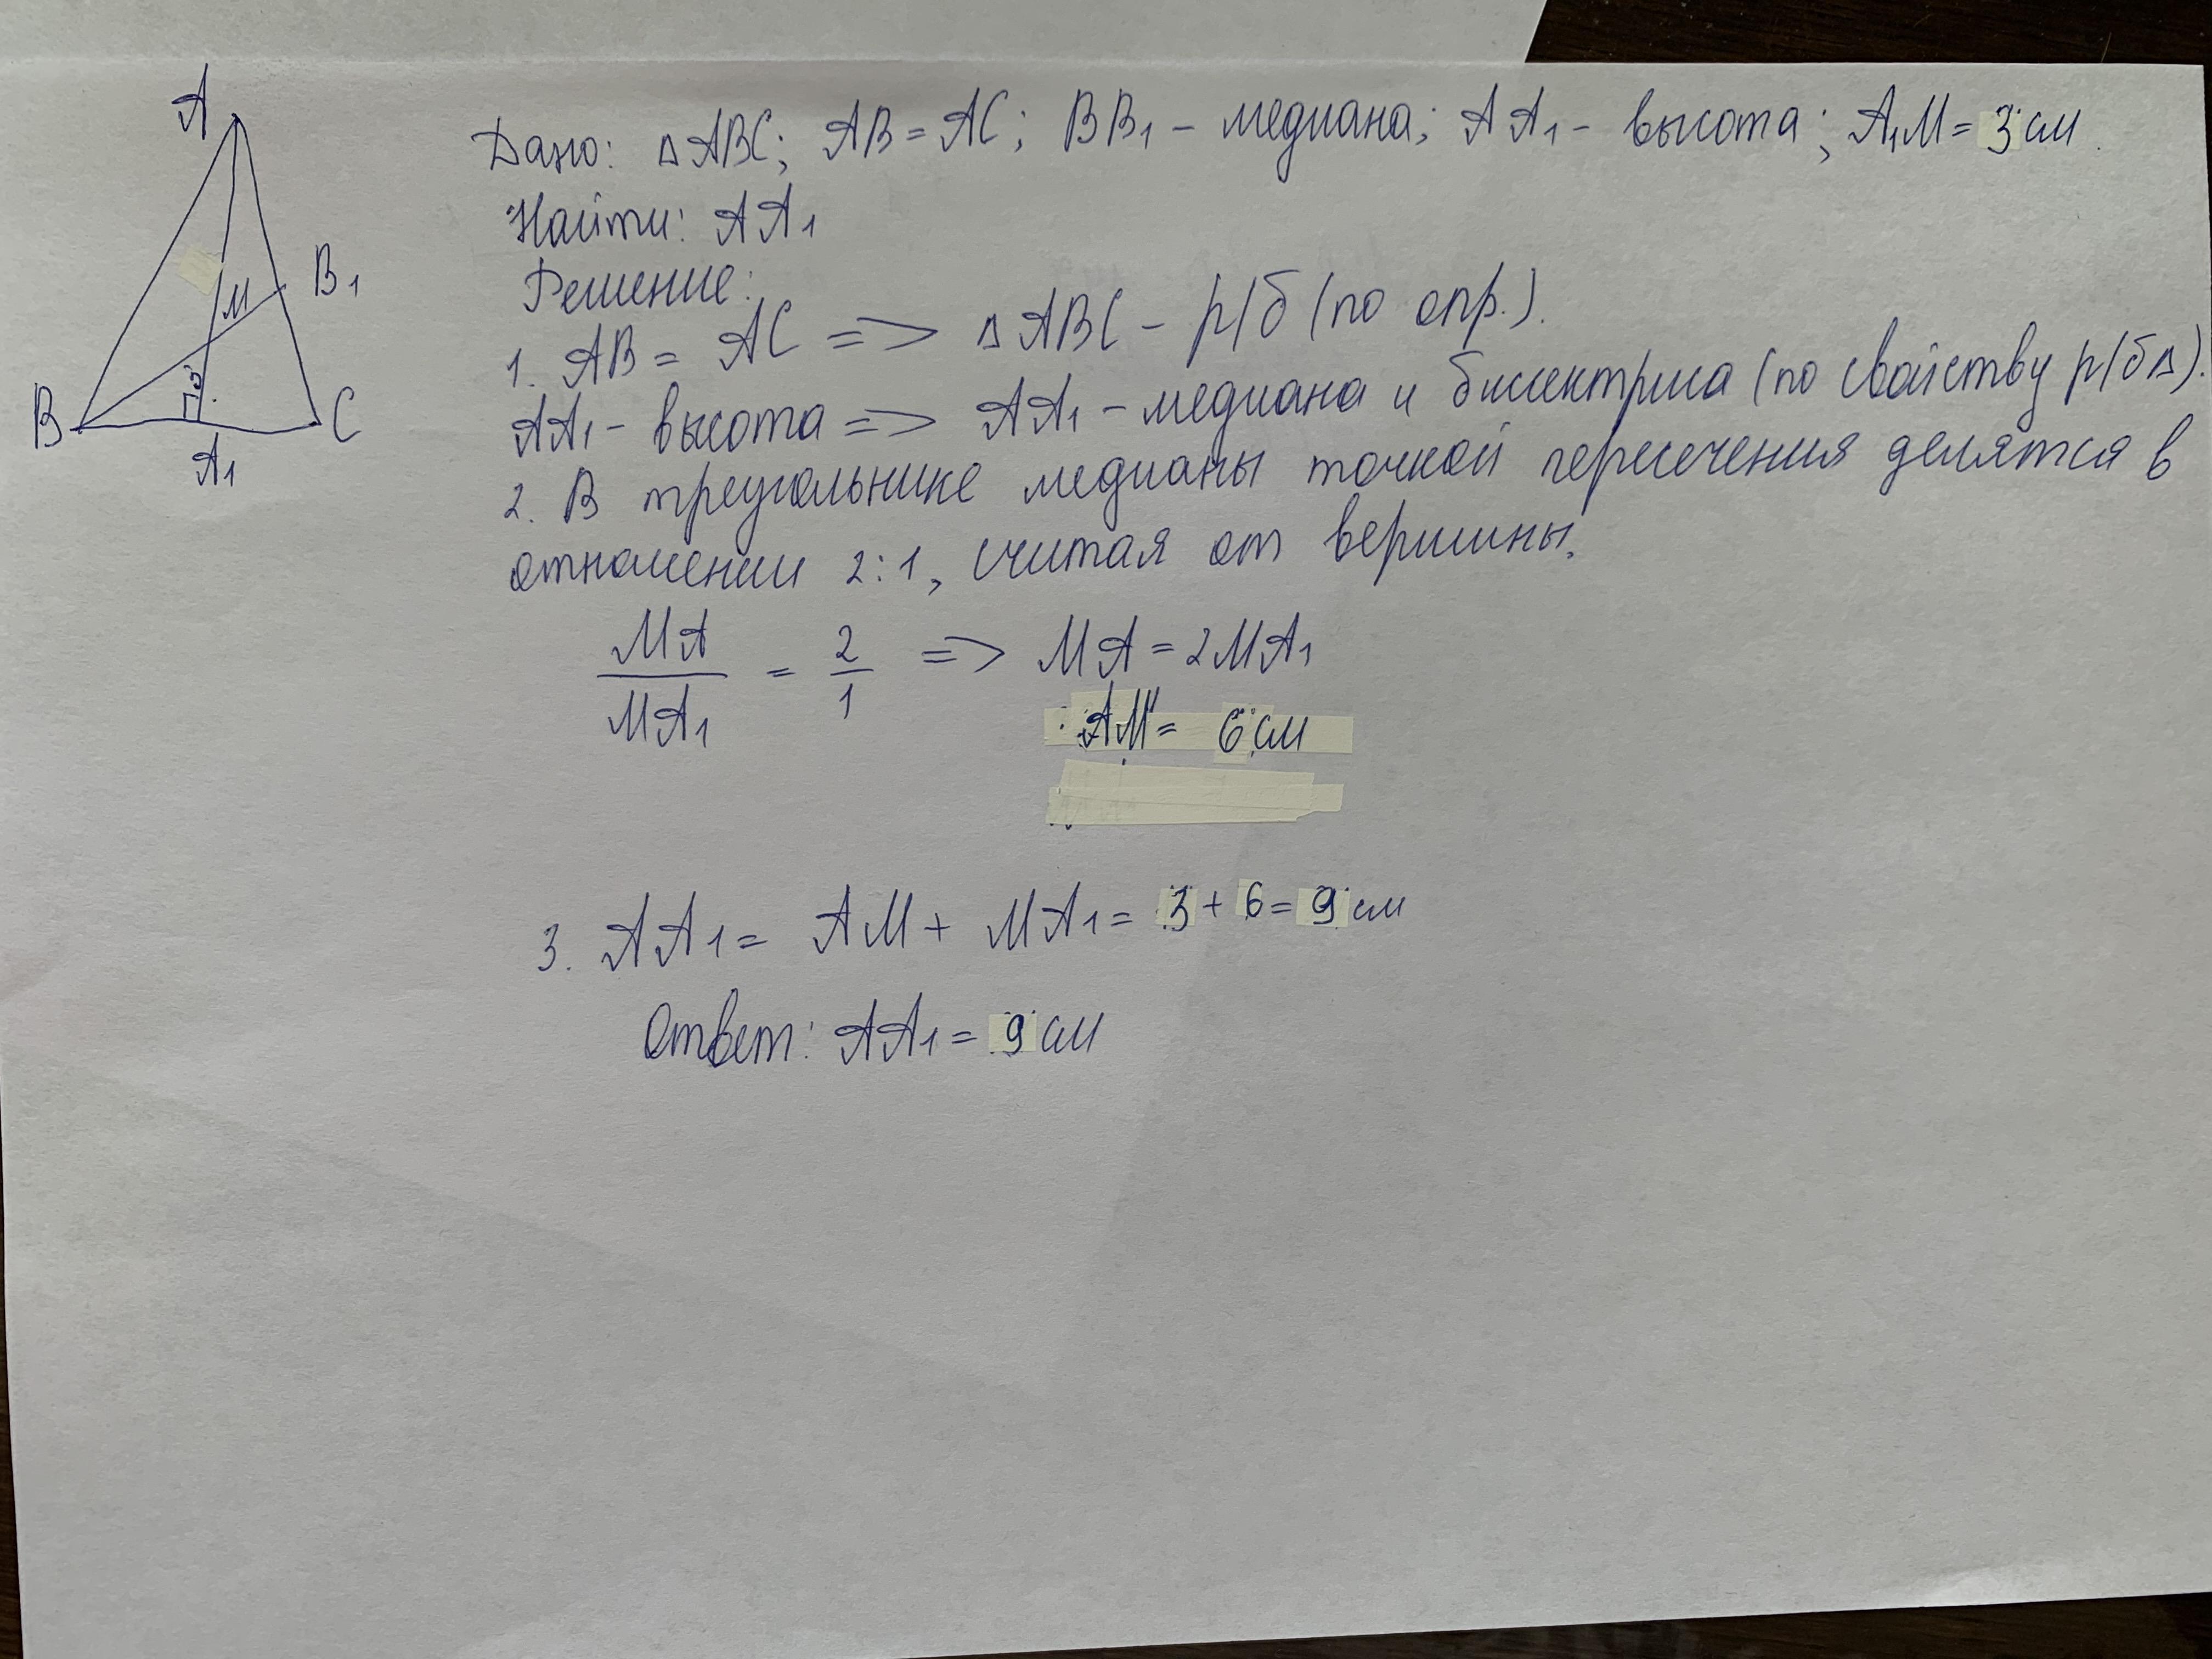 A
Дано: △ ABC; AB = AC; BB₁ - медиана; AA₁ - высота; A₁M = 3 см.
Найти: AA₁
Решение:
B₁
M
1. AB = AC => △ ABC - р/б (по опр.).
3
B
C
A₁
AA₁ - высота => AA₁ - медиана и биссектриса (по свойству р/б△).
2. В треугольнике медианы точкой пересечения делятся в
отношении 2:1, считая от вершины.
MA/MA₁ = 2/1 => MA = 2MA₁
AM = 6 см
3. AA₁ = AM + MA₁ = 3 + 6 = 9 см
Ответ: AA₁ = 9 см